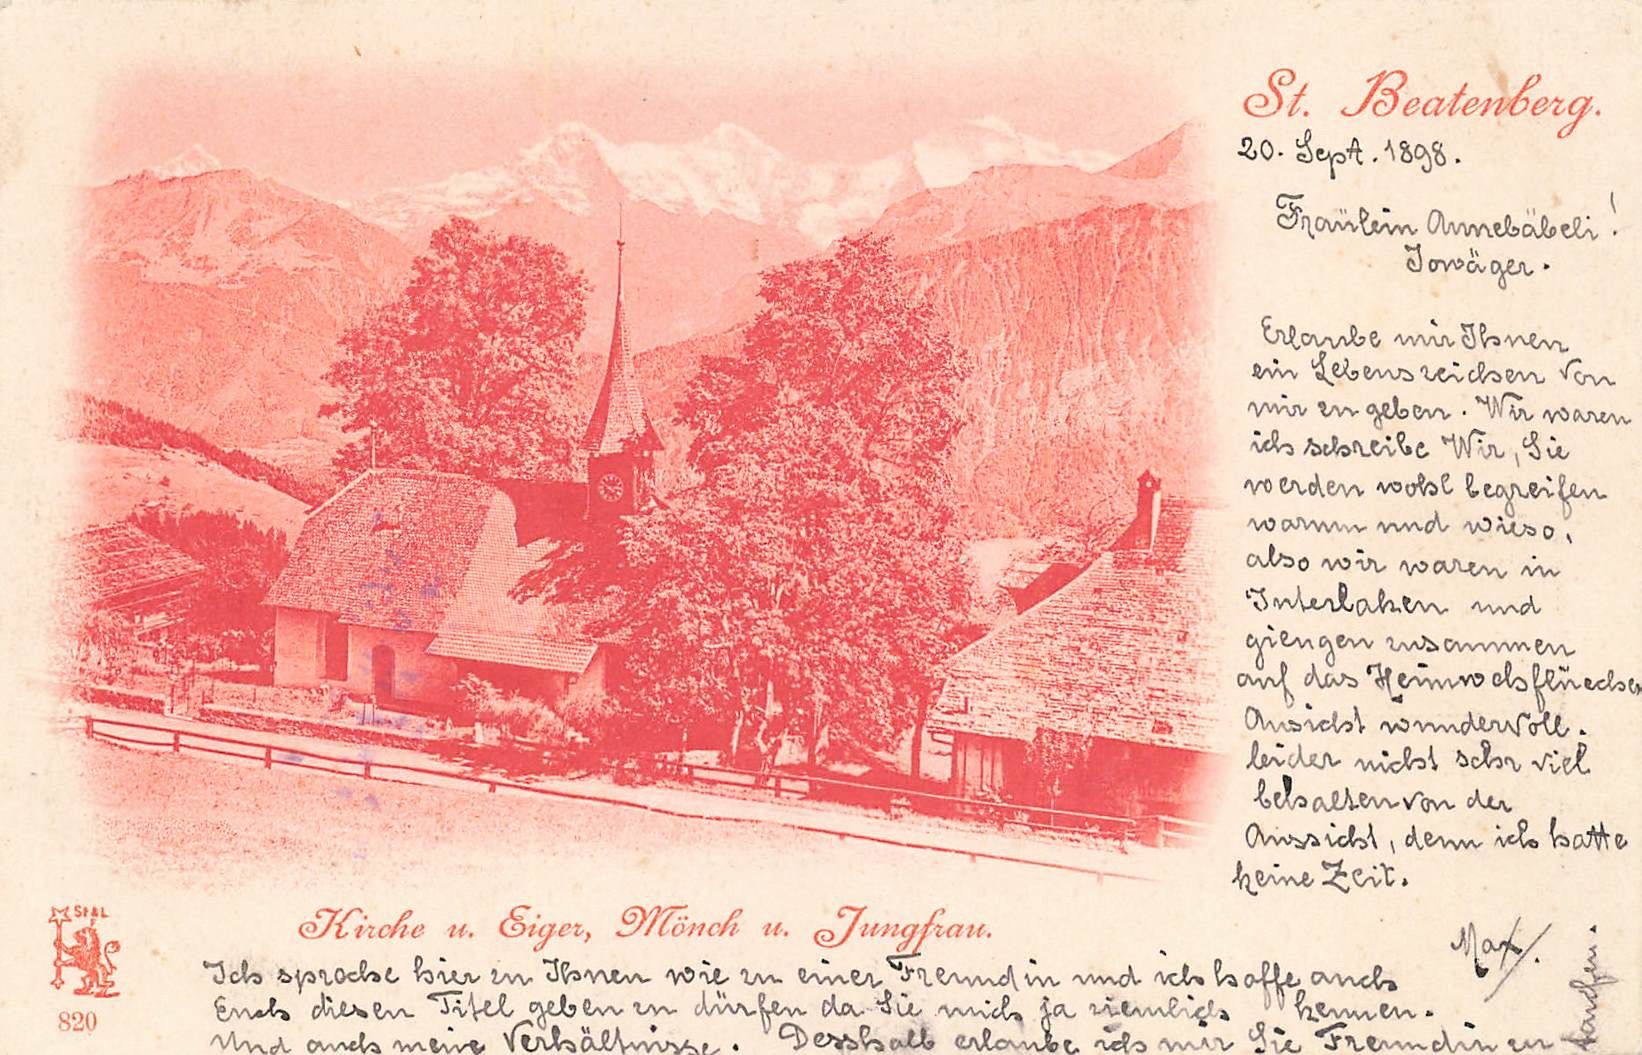 St. Beatenberg.
20. Sept. 1898.
Fräulein Annebäbeli!
Jowäger.
Erlaube mir Ihnen
ein Lebenszeichen von
mir zu geben. Wir waren
ich schreibe Wir, Sie
werden wohl begreifen
warum und wieso,
also wir waren in
Interlaken und
giengen zusammen
auf das Heimwehflüeche
Ansicht wundervoll.
leider nicht sehr viel
behalten von der
Aussicht, denn ich hatte
keine Zeit.
Max.
Kirche u. Eiger, Mönch u. Jungfrau.
St&L
820
Ich spreche hier zu Ihnen wie zu einer Freundin und ich hoffe auch
Euch diesen Titel geben zu dürfen da Sie mich ja ziemlich kennen.
Und auch meine Verhältnisse. Desshalb erlaube ich mir Sie Freundin zu
taufen.